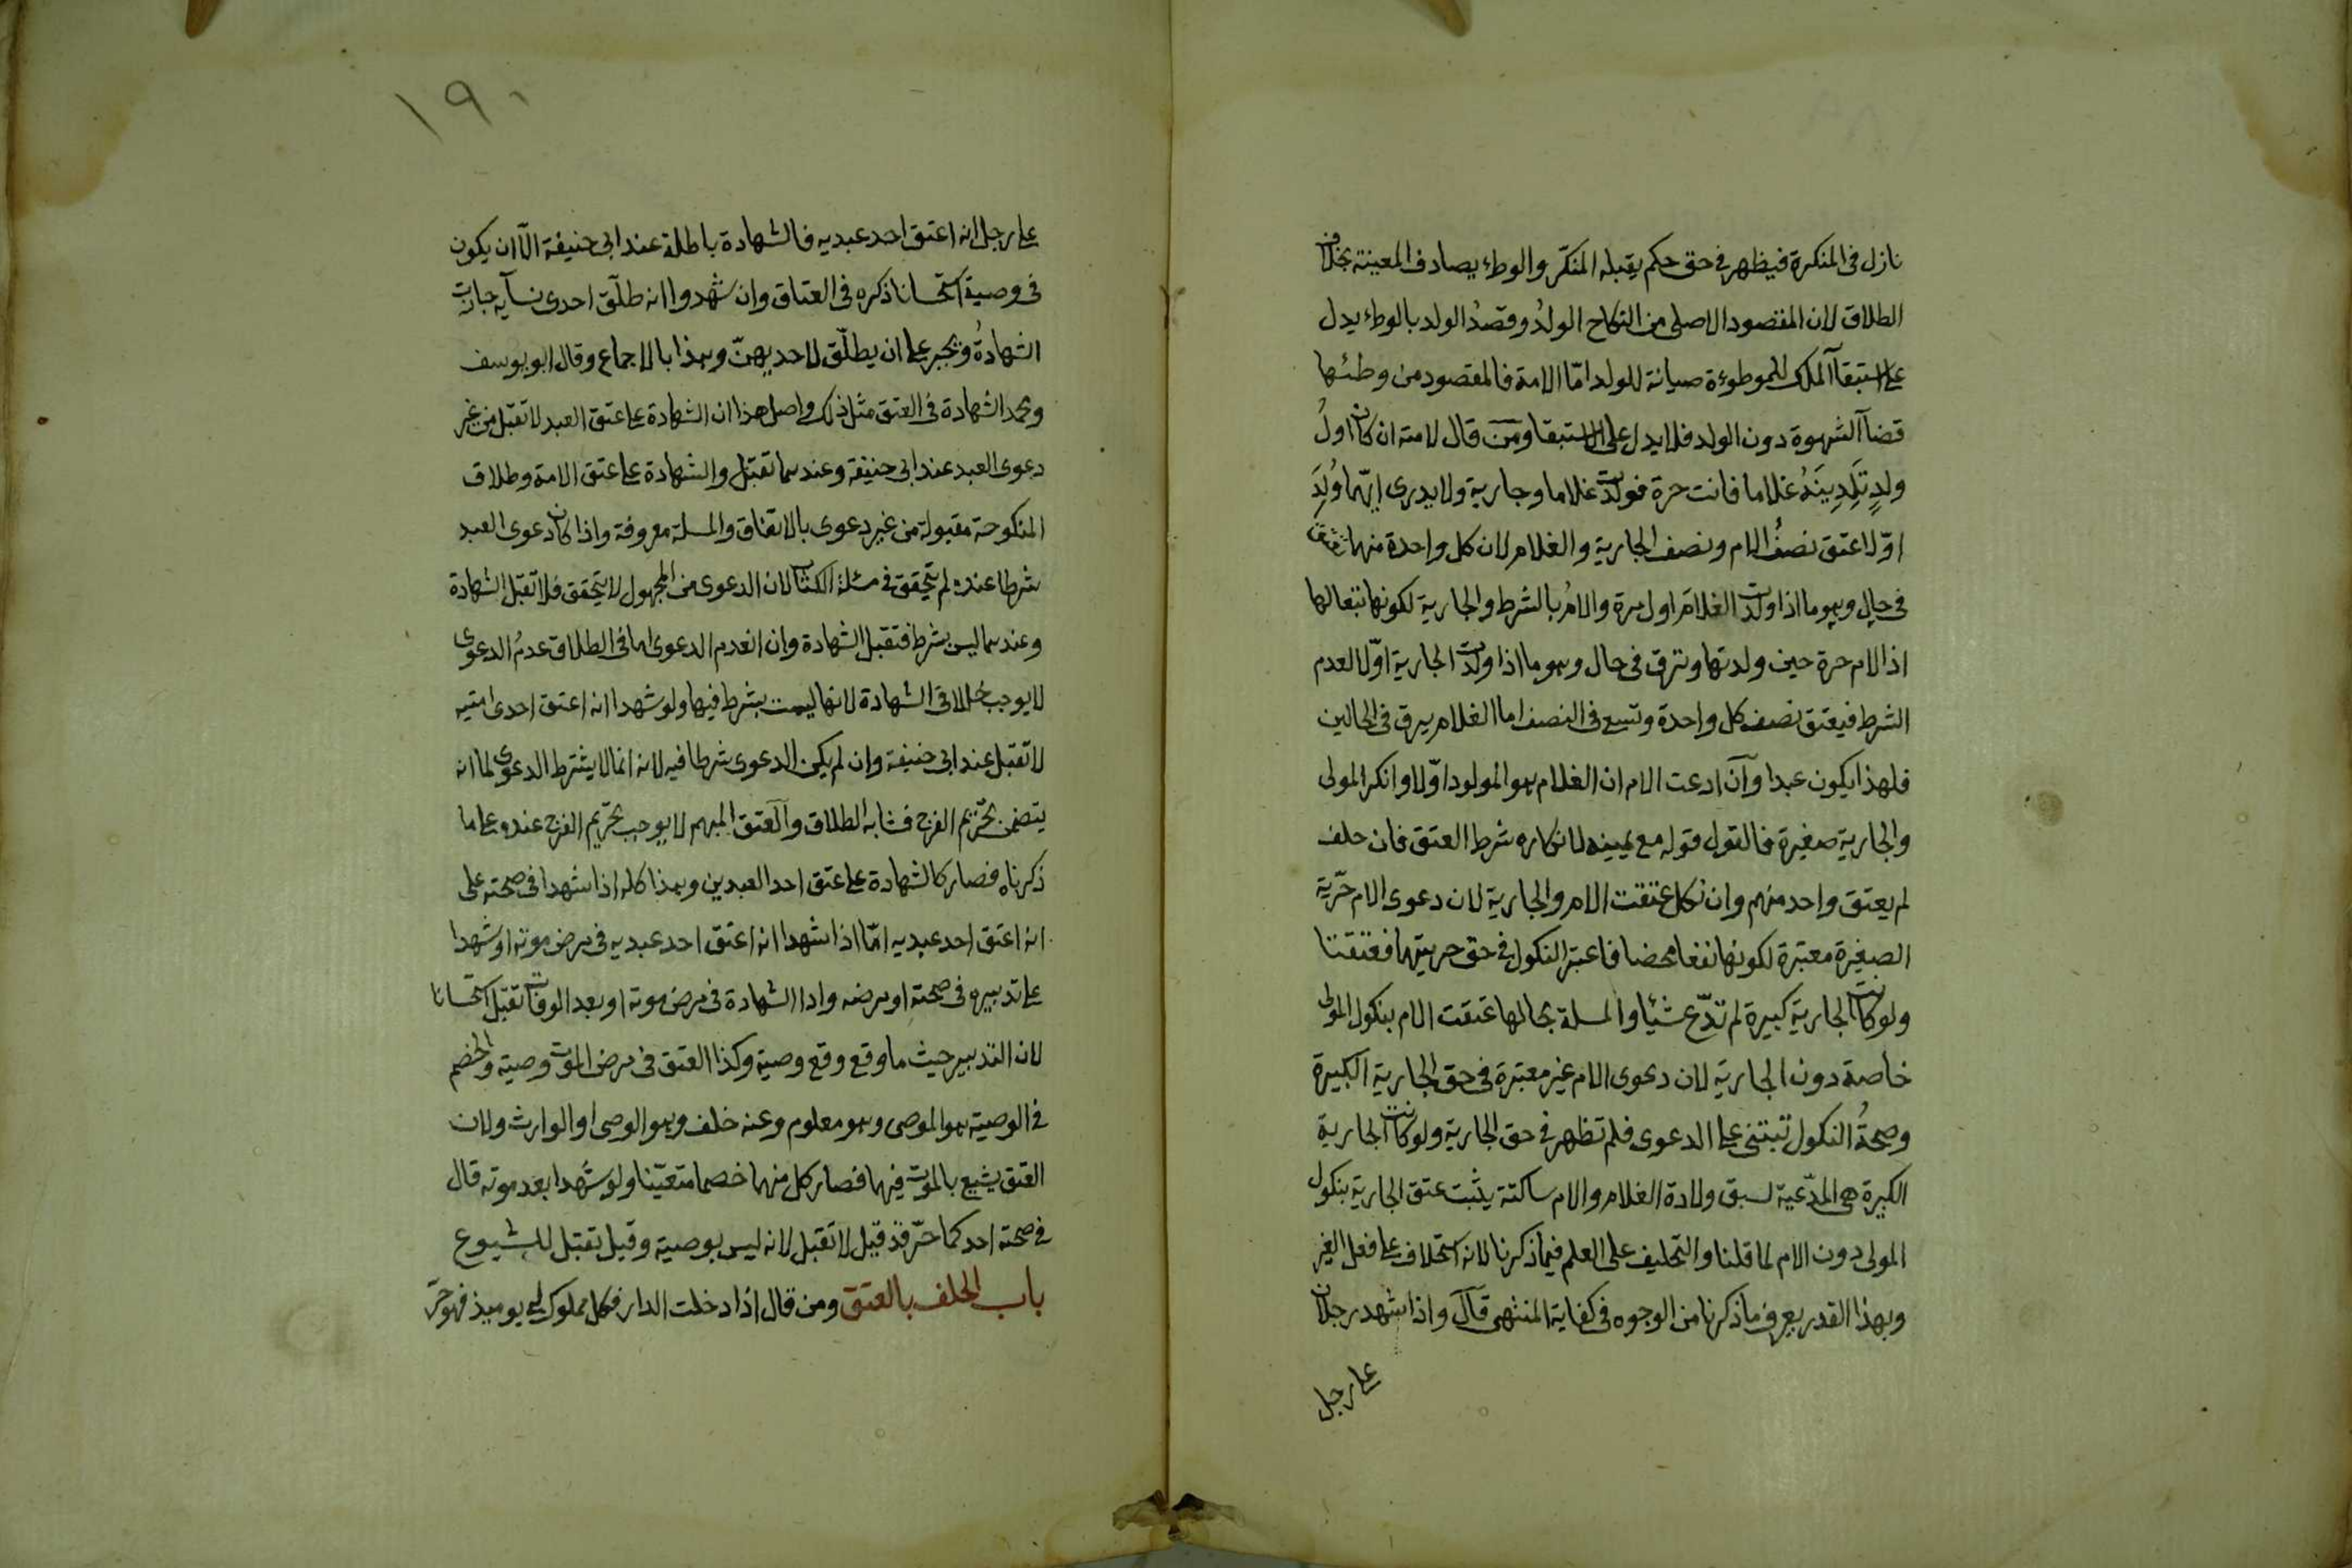 نازل فى المنكرة فيظهر فى حق حكم يقبله المنكّر والوطء يصادف المعينة بخلاف
الطلاق لان المقصود الاصلى من النكاح الولدُ وقصدُ الولد بالوطء يدل
على استبقآ الملك للموطوءة صيانة للولد امّا الامة فالمقصود من وطئها
قضآ الشهوة دون الولد فلا يدل على الاستبقا ومن قال لامته ان كان اولُ
ولدٍ تَلِدِينَهُ غلاما فانت حرة فولدت غلاما وجارية ولا يدرى ايّهما وُلِدَ
اوّلا عتق نصفُ الام ونصف الجارية والغلام لان كل واحدة منهما تعتق
فى حال وهو ما اذا ولدت الغلامَ اول مرة والامُ بالشرط والجارية لكونها تبعا لها
اذ الام حرة حين ولدتها وترق فى حال وهو ما اذا ولدت الجارية اوّلا لعدم
الشرط فيعتق نصف كل واحدة وتسع فى النصف اما الغلام يرق فى الحالين
فلهذا يكون عبدا وآن ادعت الام ان الغلام هو المولود اوّلا وانكر المولى
والجارية صغيرة فالقول قوله مع يمينه لانكاره شرط العتق فان حلف
لم يعتق واحد منهم وان نكل عتقت الام والجارية لان دعوى الام حرّية
الصغيرة معتبرة لكونها نفعا محضا فاعتبر النكول فى حق حريتهما فعتقتا
ولو كانت الجارية كبيرة لم تدّع شيئا والمسلة بحالها عتقت الام بنكول المولى
خاصة دون الجارية لان دعوى الام غير معتبرة فى حق الجارية الكبيرة
وصحةُ النكول تبتنى على الدعوى فلم تظهر فى حق الجارية ولو كانت الجارية
الكبيرة هى المدّعية لسبق ولادة الغلام والام ساكتة يثبت عتق الجارية بنكول
المولى دون الام لما قلنا والتحليف على العلم فيما ذكرنا لانه استحلاف على فعل الغير
وبهذا القدر يعرف ما ذكرنا من الوجوه فى كفاية المنتهى قال واذا شهد رجلان
على رجل
١٩٠
على رجل انه اعتق احد عبديه فالشهادة باطلة عند ابى حنيفة الآ ان يكون
فى وصية استحسانا ذكره فى العتاق وان شهدوا انه طلّق احدى نسآيه جازت
الشهادةُ ويجبر على ان يطلّق لاحديهنّ وهذا بالاجماع وقال ابو يوسف
ومحمد الشهادة فى العتق مثل ذلك واصل هذا ان الشهادة على عتق العبد لا تقبل من غير
دعوى العبد عند ابى حنيفة وعندهما تقبل والشهادة على عتق الامة وطلاق
المنكوحة مقبولة من غير دعوى بالاتفاق والمسلة معروفة واذا كان دعوى العبد
شرطا عنده لم يتحقق فى مسئلة الكتاب لان الدعوى من المجهول لا يتحقق فلا تقبل الشهادة
وعندهما ليس بشرط فتقبل الشهادة وان انعدم الدعوى اما فى الطلاق عدمُ الدعوى
لا يوجب خللا فى الشهادة لانها ليست بشرط فيها ولو شهدا انه اعتق احدى امتيه
لا تقبل عند ابى حنيفة وان لم يكن الدعوى شرطا فيه لانه انما لا يشترط الدعوى لما انه
يتضمن تحريم الفرج فشابه الطلاق والعتق المبهم لا يوجب تحريم الفرج عنده على ما
ذكرناه فصار كالشهادة على عتق احد العبدين وهذا كله اذا شهدا فى صحته على
انه اعتق احد عبديه امّا اذا شهدا انه اعتق احد عبديه فى مرض موته او شهدا
على تدبيره فى صحته او مرضه وادا الشهادة فى مرض موته او بعد الوفات تقبل استحسانا
لان التدبير حيث ما وقع وقع وصية وكذا العتق فى مرض الموت وصية والخصم
فى الوصية هو الموصى وهو معلوم وعنه خلف وهو الوصى او الوارث ولان
العتق يشيع بالموت فيهما فصار كل منهما خصما متعيّنا ولو شهدا بعد موته قال
فى صحته احدكما حرّ قد قيل لا تقبل لانه ليس بوصية وقيل تقبل للشيوع
باب الحلف بالعتق ومن قال اذا دخلت الدار فكل مملوك لى يوميذ فهو حرّ